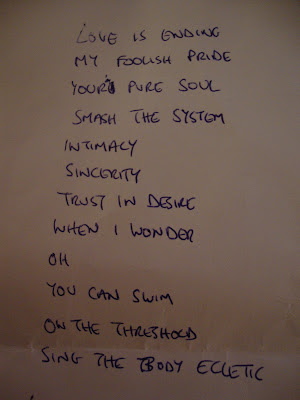 LOVE IS ENDING
MY FOOLISH PRIDE
YOUR PURE SOUL
SMASH THE SYSTEM
INTIMACY
SINCERITY
TRUST IN DESIRE
WHEN I WONDER
OH
YOU CAN SWIM
ON THE THRESHOLD
SING THE BODY ECLETIC